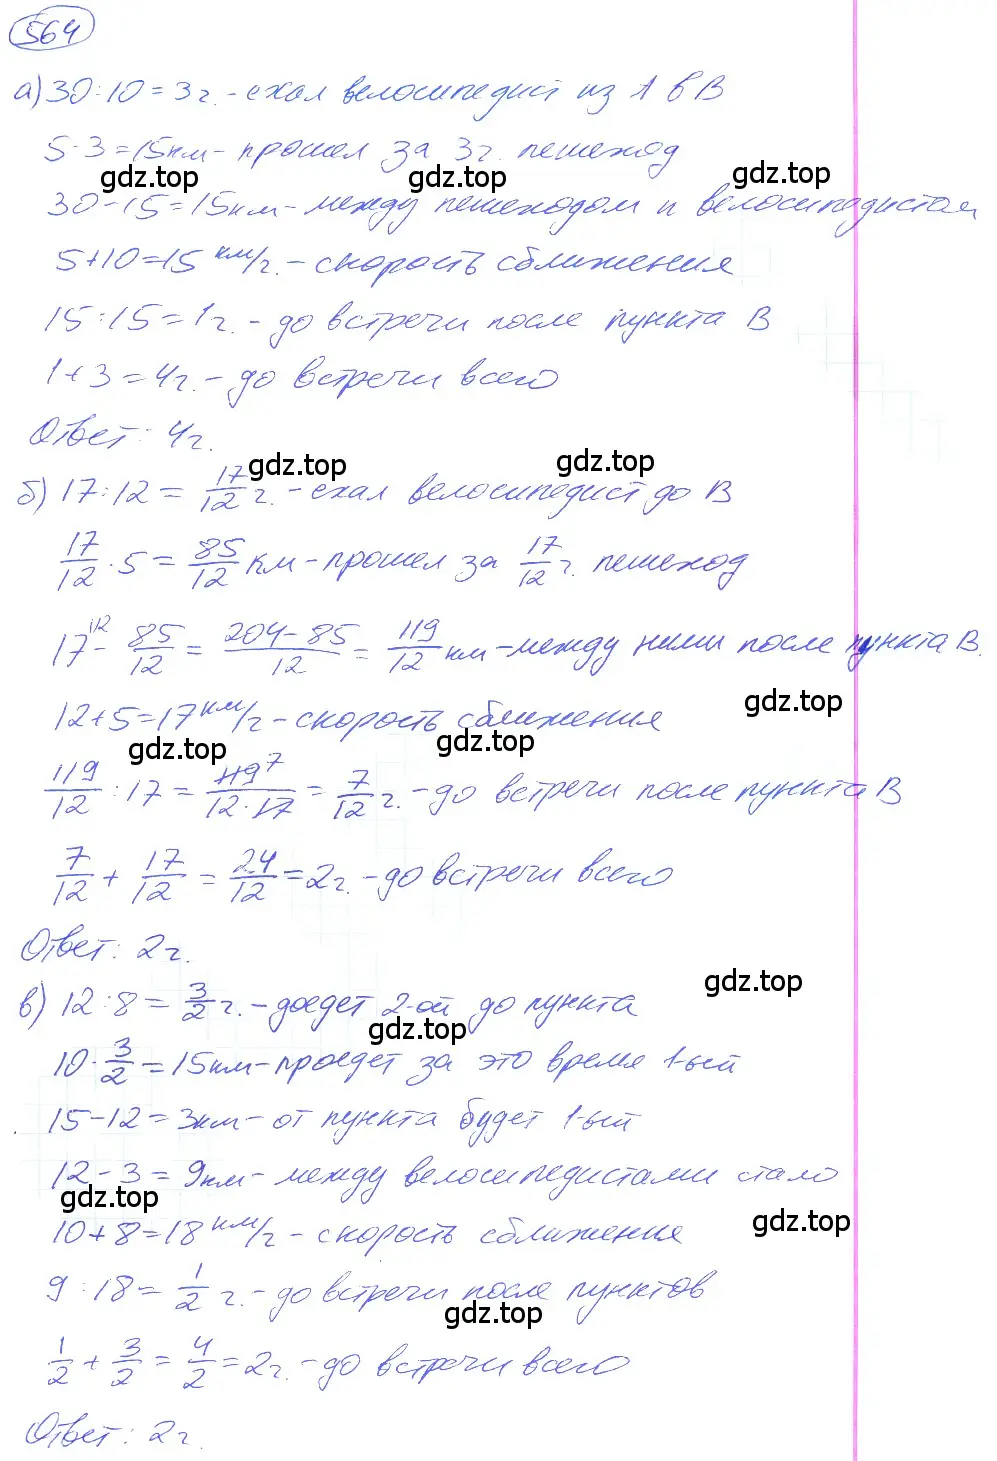 564
а) 30:10=3г.-ехал велосипедист из А в В
5·3=15км-прошел за 3г. пешеход
gdz.top gdz.top gdz.top
30-15=15км-между пешеходом и велосипедистом
5+10=15 км/г.-скорость сближения
15:15=1г.-до встречи после пункта В
1+3=4г.-до встречи всего
Ответ: 4г.
gdz.top gdz.top
б) 17:12 = 17/12 г.-ехал велосипедист до В
17/12 · 5 = 85/12 км-прошел за 17/12 г. пешеход
17 12 - 85/12 = 204-85/12 = 119/12 км-между ними после пункта В.
12+5=17 км/г-скорость сближения
gdz.top gdz.top gdz.top
119/12 : 17 = 119 7/12·17 = 7/12 г.-до встречи после пункта В
7/12 + 17/12 = 24/12 = 2г.-до встречи всего
Ответ: 2г.
в) 12:8 = 3/2 г.-доедет 2-ой до пункта
gdz.top gdz.top
10·3/2 = 15км-проедет за это время 1-ый
15-12=3км-от пункта будет 1-ый
12-3=9км-между велосипедистами стало
gdz.top gdz.top
10+8=18 км/г-скорость сближения
9:18 = 1/2 г.-до встречи после пунктов
gdz.top
1/2 + 3/2 = 4/2 = 2г.-до встречи всего
Ответ: 2г.